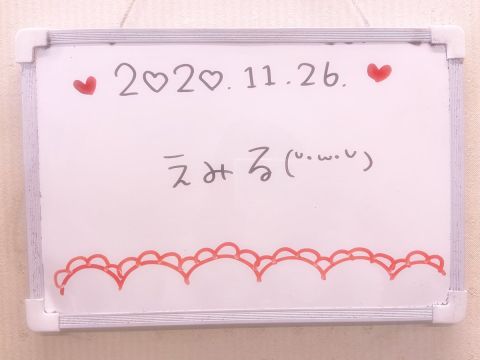 2♡2♡.11.26.
えみる(ᵕ·ω·ᵕ)